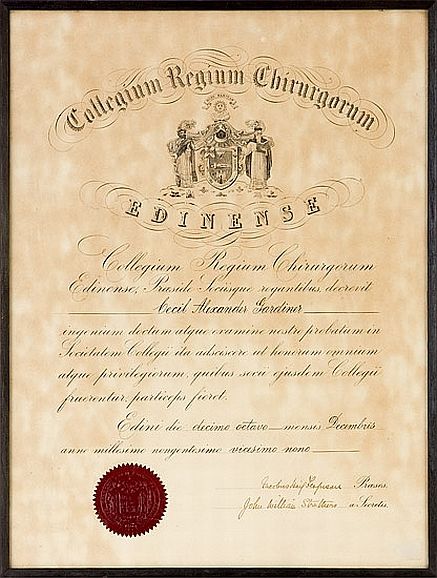 Collegium Regium Chirurgorum
EDINENSE
Collegium Regium Chirurgorum
Edinense, Præside Sociisque rogantibus, decrevit
Cecil Alexander Gardiner
ingenium doctum atque examine nostro probatum in
Societatem Collegii ita adsciscere ut honorum omnium
atque privilegiorum, quibus socii ejusdem Collegii
fruerentur, particeps fieret.
Edini die decimo octavo mensis Decembris
anno millesimo nongentesimo vicesimo nono
Præses.
John William Struthers a Secretis.